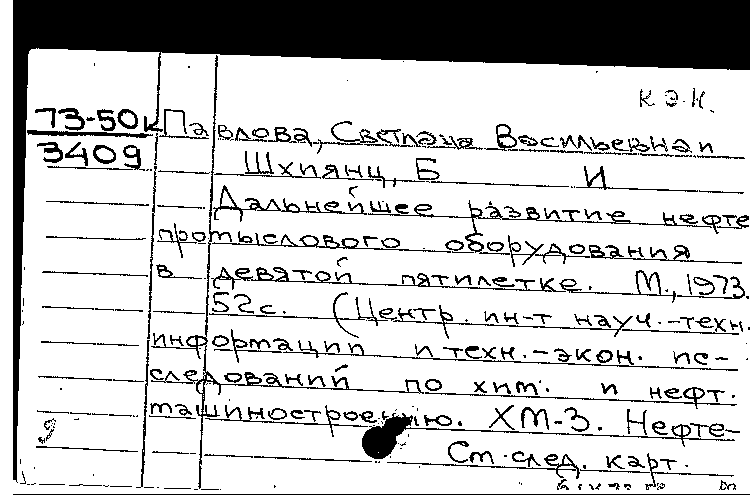 К.Э.Н.
73-50к Павлова, Светлана Васильевна и
3409 Шхиянц, Б И
Дальнейшее развитие нефте
промыслового оборудования
в девятой пятилетке. М., 1973.
52с. (Центр. ин-т науч.-техн.
информации и техн.-экон. ис-
следований по хим. и нефт.
машиностроению. ХМ-3. Нефте-
9 См. след. карт.